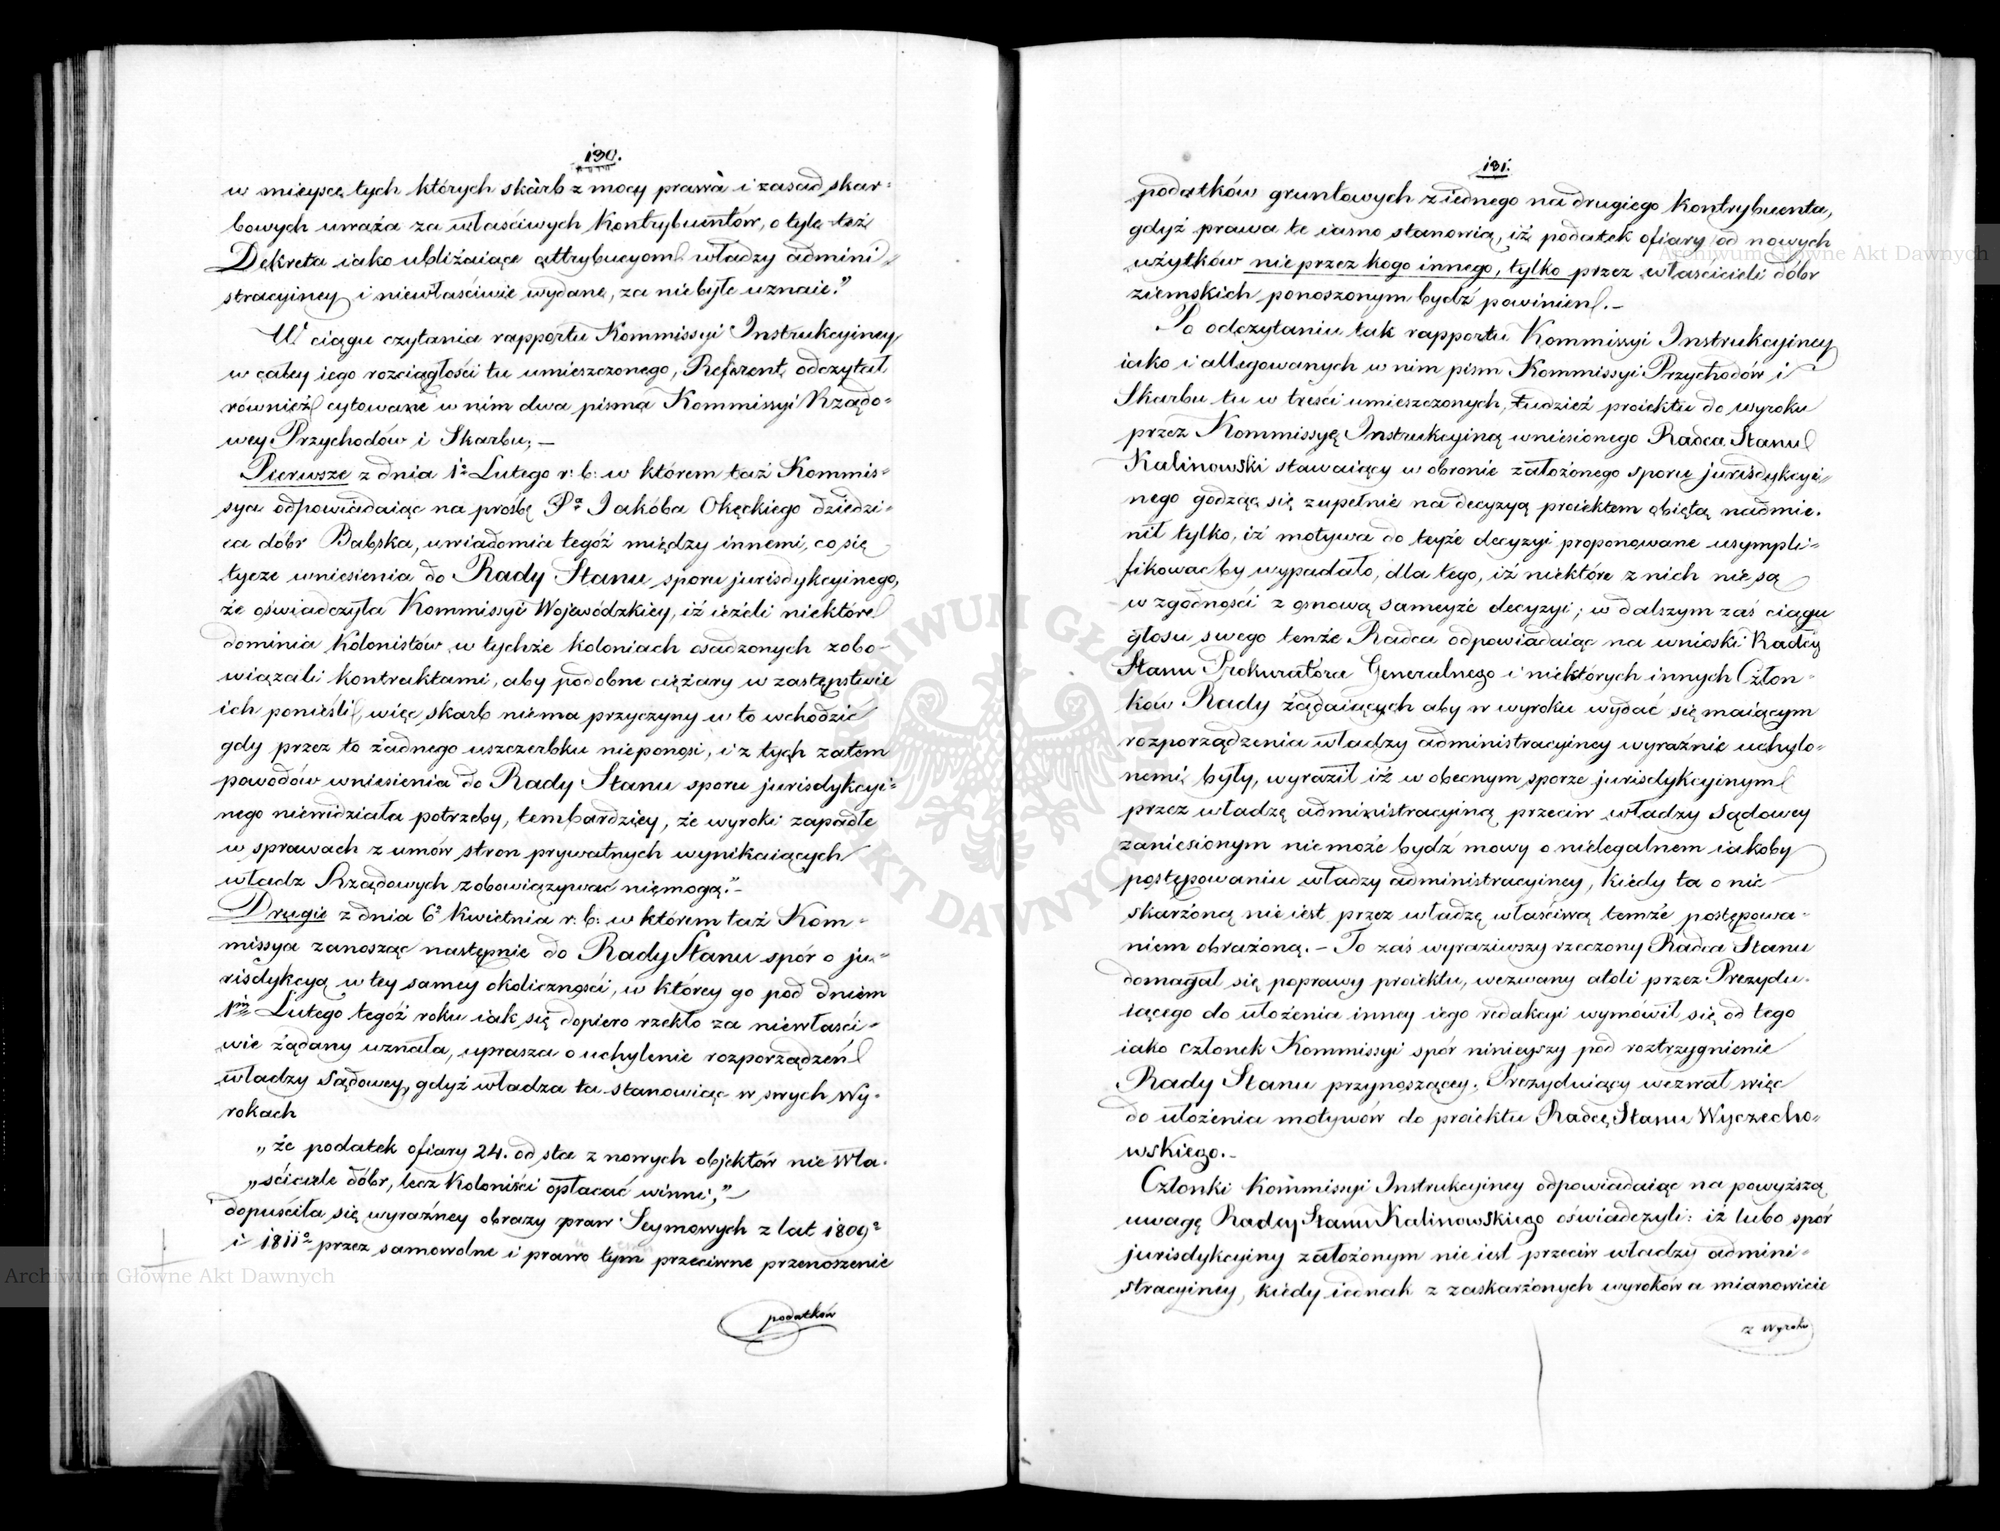 130.
w mieysce tych których skarb z mocy prawa i zasad skar-
bowych uważa za właściwych Kontrybuentów, o tyle też
Dekreta iako ubliżaiące attrybucyom władzy admini-
stracyiney i niewłaściwie wydane, za niebyłe uznaie."
W ciągu czytania rapportu Kommissyi Instrukcyiney
w całey iego rozciągłości tu umieszczonego, Referent odczytał
również cytowane w nim dwa pisma Kommissyi Rządo-
wey Przychodów i Skarbu; —
Pierwsze z dnia 1o Lutego r: b: w którem taż Kommis-
sya odpowiadaiąc na prośbę Pa Jakóba Okęckiego dziedzi-
ca dóbr Babska, uwiadomia tegóż między innemi, co się
tycze wniesienia do Rady Stanu sporu jurisdykcyinego,
że oświadczyła Kommissyi Wojewódzkiey, iż ieżeli niektóre
dominia Kolonistów w tychże koloniach osadzonych zobo-
wiązali kontraktami, aby podobne ciężary w zastępstwie
ich ponieśli, więc skarb niema przyczyny w to wchodzić
gdy przez to żadnego uszczerbku nieponosi, i z tych zatem
powodów wniesienia do Rady Stanu sporu jurisdykcyi-
nego niewidziała potrzeby, tembardziey, że wyroki zapadłe
w sprawach z umów stron prywatnych wynikaiących
władz Rządowych zobowiązywać niemogą." —
Drugie z dnia 6o Kwietnia r: b: w którem taż Kom-
missya zanosząc następnie do Rady Stanu spór o ju-
risdykcyą w tey samey okoliczności, w którey go pod dniem
1m Lutego tegóż roku iak się dopiero rzekło za niewłaści-
wie żądany uznała, uprasza o uchylenie rozporządzeń
władzy Sądowey, gdyż władza ta stanowiąc w swych Wy-
rokach
„że podatek ofiary 24. od sta z nowych objektów nie Wła-
„ściciele dóbr, lecz Koloniści opłacać winni," —
dopuściła się wyraźney obrazy praw Seymowych z lat 1809o
i 1811o przez samowolne i prawo tym przeciwne przenoszenie
podatków
131.
podatków gruntowych z iednego na drugiego Kontrybuenta,
gdyż prawa te iasno stanowią, iż podatek ofiary od nowych
użytków nie przez kogo innego, tylko przez właścicieli dóbr
ziemskich ponoszonym bydź powinien. —
Po odczytaniu tak rapportu Kommissyi Instrukcyiney
iako i allegowanych w nim pism Kommissyi Przychodów i
Skarbu tu w treści umieszczonych, tudzież proiektu do wyroku
przez Kommissyę Instrukcyiną wniesionego Radca Stanu
Kalinowski stawaiący w obronie założonego sporu jurisdykcyi-
nego godząc się zupełnie na decyzyą proiektem obiętą nadmie-
nił tylko, iż motywa do teyże decyzyi proponowane usympli-
fikowac by wypadało, dla tego, iż niektóre z nich nie są
w zgodności z osnową sameyże decyzyi; w dalszym zaś ciągu
głosu swego tenże Radca odpowiadaiąc na wnioski Radcy
Stanu Prokuratora Generalnego i niektórych innych Człon-
ków Rady żądaiących aby w wyroku wydać się maiącym
rozporządzenia władzy administracyiney wyraźnie uchylo-
nemi były, wyraził iż w obecnym sporze jurisdykcyinym
przez władzę administracyiną przeciw władzy Sądowey
zaniesionym niemoże bydź mowy o nielegalnem iakoby
postępowaniu władzy administracyiney, kiedy ta o nie
skarżoną nie iest przez władzę właściwą temże postępowa-
niem obrażoną. — To zaś wyraziwszy rzeczony Radca Stanu
domagał się poprawy proiektu, wezwany atoli przez Prezydu-
iącego do ułożenia inney iego redakcyi wymówił się od tego
iako członek Kommissyi spór ninieyszy pod roztrzygnienie
Rady Stanu przynoszącey. Prezyduiący wezwał więc
do ułożenia motywów do proiektu Radcę Stanu Wyczecho-
wskiego. —
Członki Kommissyi Instrukcyiney odpowiadaiąc na powyższą
uwagę Radcy Stanu Kalinowskiego oświadczyli: iż lubo spór
jurisdykcyiny założonym nie iest przeciw władzy admini-
stracyiney, kiedy iednak z zaskarżonych wyroków a mianowicie
z Wyroku
Archiwum Główne Akt Dawnych
Archiwum Główne Akt Dawnych
ARCHIWUM GŁÓWNE AKT DAWNYCH